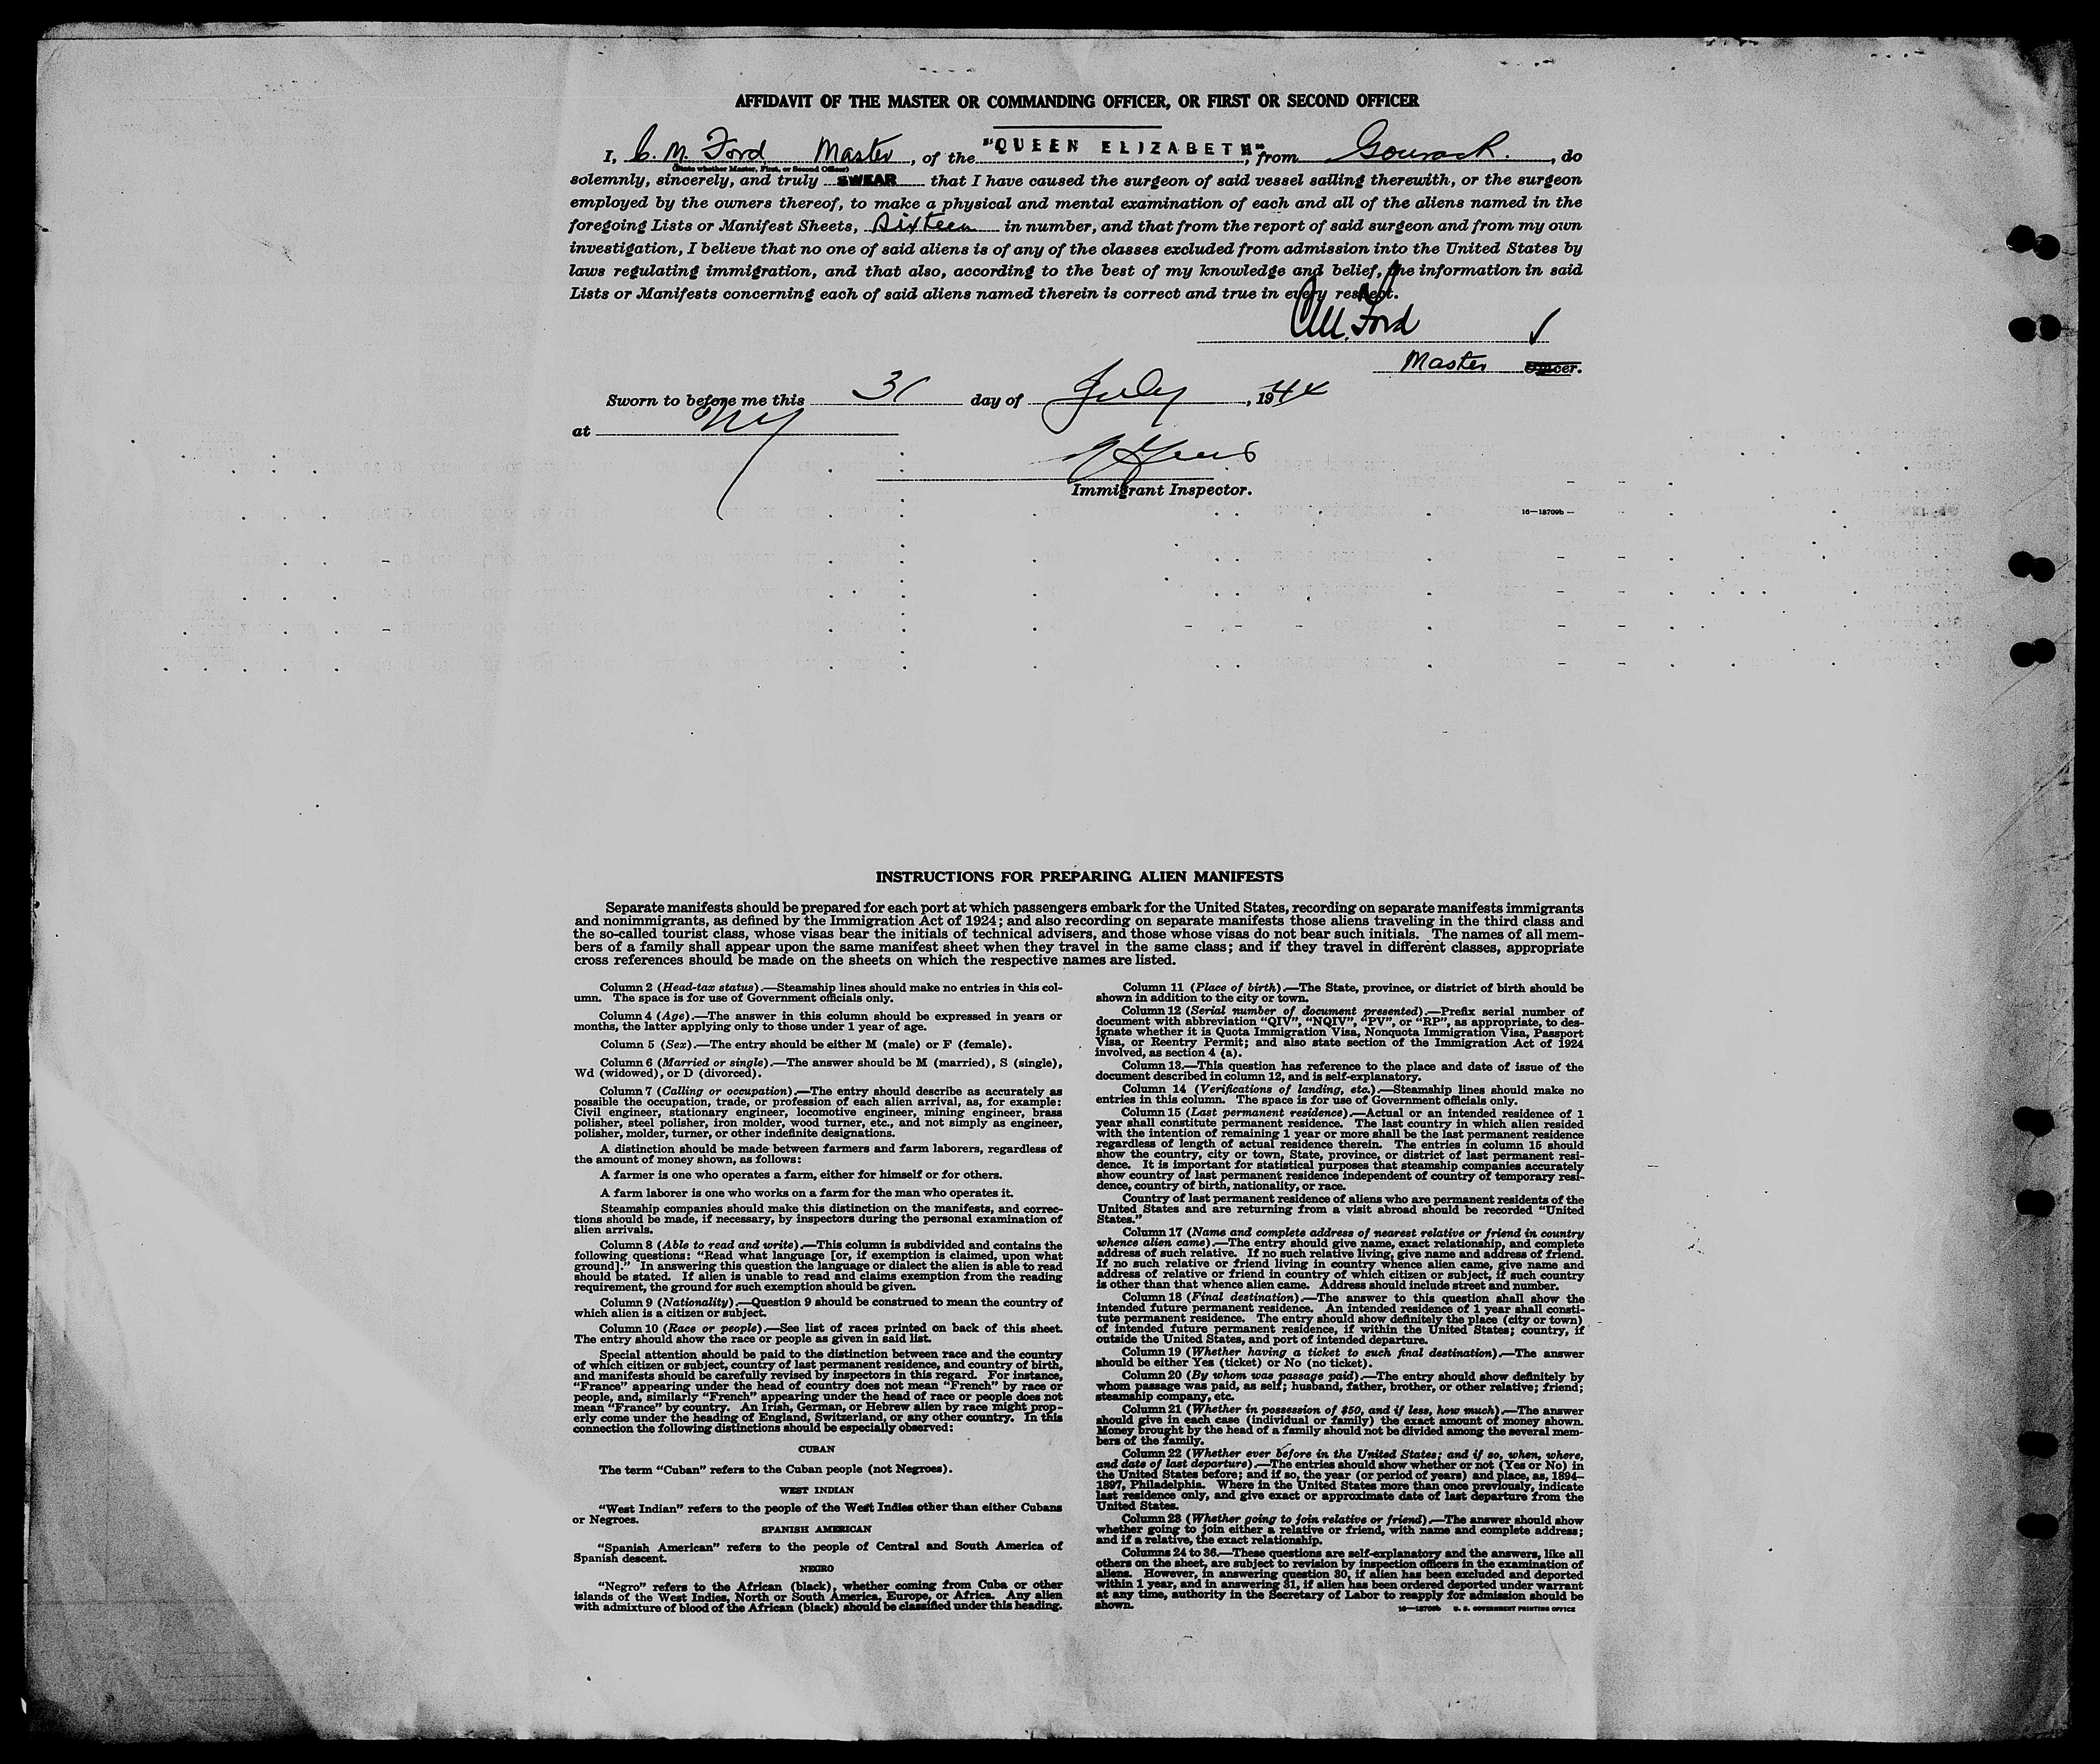 AFFIDAVIT OF THE MASTER OR COMMANDING OFFICER, OR FIRST OR SECOND OFFICER
I, C. M. Ford Master, of the "QUEEN ELIZABETH", from Gourock, do
(State whether Master, First, or Second Officer)
solemnly, sincerely, and truly SWEAR that I have caused the surgeon of said vessel sailing therewith, or the surgeon
employed by the owners thereof, to make a physical and mental examination of each and all of the aliens named in the
foregoing Lists or Manifest Sheets, Sixteen in number, and that from the report of said surgeon and from my own
investigation, I believe that no one of said aliens is of any of the classes excluded from admission into the United States by
laws regulating immigration, and that also, according to the best of my knowledge and belief, the information in said
Lists or Manifests concerning each of said aliens named therein is correct and true in every respect.
C.M. Ford
Master Officer.
Sworn to before me this 31 day of July, 1944
at NY
Immigrant Inspector.
16—18709b
INSTRUCTIONS FOR PREPARING ALIEN MANIFESTS
Separate manifests should be prepared for each port at which passengers embark for the United States, recording on separate manifests immigrants
and nonimmigrants, as defined by the Immigration Act of 1924; and also recording on separate manifests those aliens traveling in the third class and
the so-called tourist class, whose visas bear the initials of technical advisers, and those whose visas do not bear such initials. The names of all mem-
bers of a family shall appear upon the same manifest sheet when they travel in the same class; and if they travel in different classes, appropriate
cross references should be made on the sheets on which the respective names are listed.
Column 2 (Head-tax status).—Steamship lines should make no entries in this col-
umn. The space is for use of Government officials only.
Column 4 (Age).—The answer in this column should be expressed in years or
months, the latter applying only to those under 1 year of age.
Column 5 (Sex).—The entry should be either M (male) or F (female).
Column 6 (Married or single).—The answer should be M (married), S (single),
Wd (widowed), or D (divorced).
Column 7 (Calling or occupation).—The entry should describe as accurately as
possible the occupation, trade, or profession of each alien arrival, as, for example:
Civil engineer, stationary engineer, locomotive engineer, mining engineer, brass
polisher, steel polisher, iron molder, wood turner, etc., and not simply as engineer,
polisher, molder, turner, or other indefinite designations.
A distinction should be made between farmers and farm laborers, regardless of
the amount of money shown, as follows:
A farmer is one who operates a farm, either for himself or for others.
A farm laborer is one who works on a farm for the man who operates it.
Steamship companies should make this distinction on the manifests, and correc-
tions should be made, if necessary, by inspectors during the personal examination of
alien arrivals.
Column 8 (Able to read and write).—This column is subdivided and contains the
following questions: "Read what language [or, if exemption is claimed, upon what
ground]." In answering this question the language or dialect the alien is able to read
should be stated. If alien is unable to read and claims exemption from the reading
requirement, the ground for such exemption should be given.
Column 9 (Nationality).—Question 9 should be construed to mean the country of
which alien is a citizen or subject.
Column 10 (Race or people).—See list of races printed on back of this sheet.
The entry should show the race or people as given in said list.
Special attention should be paid to the distinction between race and the country
of which citizen or subject, country of last permanent residence, and country of birth,
and manifests should be carefully revised by inspectors in this regard. For instance,
"France" appearing under the head of country does not mean "French" by race or
people, and, similarly "French" appearing under the head of race or people does not
mean "France" by country. An Irish, German, or Hebrew alien by race might prop-
erly come under the heading of England, Switzerland, or any other country. In this
connection the following distinctions should be especially observed:
CUBAN
The term "Cuban" refers to the Cuban people (not Negroes).
WEST INDIAN
"West Indian" refers to the people of the West Indies other than either Cubans
or Negroes.
SPANISH AMERICAN
"Spanish American" refers to the people of Central and South America of
Spanish descent.
NEGRO
"Negro" refers to the African (black), whether coming from Cuba or other
islands of the West Indies, North or South America, Europe, or Africa. Any alien
with admixture of blood of the African (black) should be classified under this heading.
Column 11 (Place of birth).—The State, province, or district of birth should be
shown in addition to the city or town.
Column 12 (Serial number of document presented).—Prefix serial number of
document with abbreviation "QIV", "NQIV", "PV", or "RP", as appropriate, to des-
ignate whether it is Quota Immigration Visa, Nonquota Immigration Visa, Passport
Visa, or Reentry Permit; and also state section of the Immigration Act of 1924
involved, as section 4 (a).
Column 13.—This question has reference to the place and date of issue of the
document described in column 12, and is self-explanatory.
Column 14 (Verifications of landing, etc.).—Steamship lines should make no
entries in this column. The space is for use of Government officials only.
Column 15 (Last permanent residence).—Actual or an intended residence of 1
year shall constitute permanent residence. The last country in which alien resided
with the intention of remaining 1 year or more shall be the last permanent residence
regardless of length of actual residence therein. The entries in column 15 should
show the country, city or town, State, province, or district of last permanent resi-
dence. It is important for statistical purposes that steamship companies accurately
show country of last permanent residence independent of country of temporary resi-
dence, country of birth, nationality, or race.
Country of last permanent residence of aliens who are permanent residents of the
United States and are returning from a visit abroad should be recorded "United
States."
Column 17 (Name and complete address of nearest relative or friend in country
whence alien came).—The entry should give name, exact relationship, and complete
address of such relative. If no such relative living, give name and address of friend.
If no such relative or friend living in country whence alien came, give name and
address of relative or friend in country of which citizen or subject, if such country
is other than that whence alien came. Address should include street and number.
Column 18 (Final destination).—The answer to this question shall show the
intended future permanent residence. An intended residence of 1 year shall consti-
tute permanent residence. The entry should show definitely the place (city or town)
of intended future permanent residence, if within the United States; country, if
outside the United States, and port of intended departure.
Column 19 (Whether having a ticket to such final destination).—The answer
should be either Yes (ticket) or No (no ticket).
Column 20 (By whom was passage paid).—The entry should show definitely by
whom passage was paid, as self; husband, father, brother, or other relative; friend;
steamship company, etc.
Column 21 (Whether in possession of $50, and if less, how much).—The answer
should give in each case (individual or family) the exact amount of money shown.
Money brought by the head of a family should not be divided among the several mem-
bers of the family.
Column 22 (Whether ever before in the United States; and if so, when, where,
and date of last departure).—The entries should show whether or not (Yes or No) in
the United States before; and if so, the year (or period of years) and place, as, 1894–
1897, Philadelphia. Where in the United States more than once previously, indicate
last residence only, and give exact or approximate date of last departure from the
United States.
Column 23 (Whether going to join relative or friend).—The answer should show
whether going to join either a relative or friend, with name and complete address;
and if a relative, the exact relationship.
Columns 24 to 36.—These questions are self-explanatory and the answers, like all
others on the sheet, are subject to revision by inspection officers in the examination of
aliens. However, in answering question 30, if alien has been excluded and deported
within 1 year, and in answering 31, if alien has been ordered deported under warrant
at any time, authority in the Secretary of Labor to reapply for admission should be
shown.
16—18709b U. S. GOVERNMENT PRINTING OFFICE